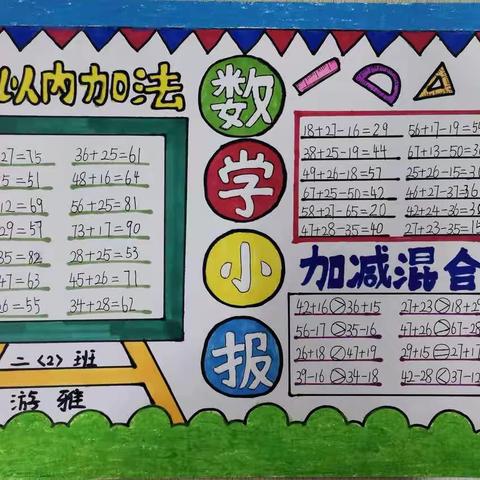 以内加法
27=75 36+25=61
5=51 48+16=64
12=69 56+25=81
29=57 73+17=90
35=82 28+25=53
47=63 45+26=71
6=55 34+28=62
二〈2〉班
游雅
数
学
小
报
18+27-16=29 56+17-19=5
28+25-19=44 67+13-50=3
49+26-18=57 25+26-15=3
67+25-50=42 46+27-37=36
58+27-65=20 42+24-36=3
47+28-35=40 27+23-35=15
加减混合
42+16>36+15 27+23>18+29
56-17>35-16 47+26>67-28
26+18<47+19 29+15=27+17
39-16>34-18 42-28<37-12